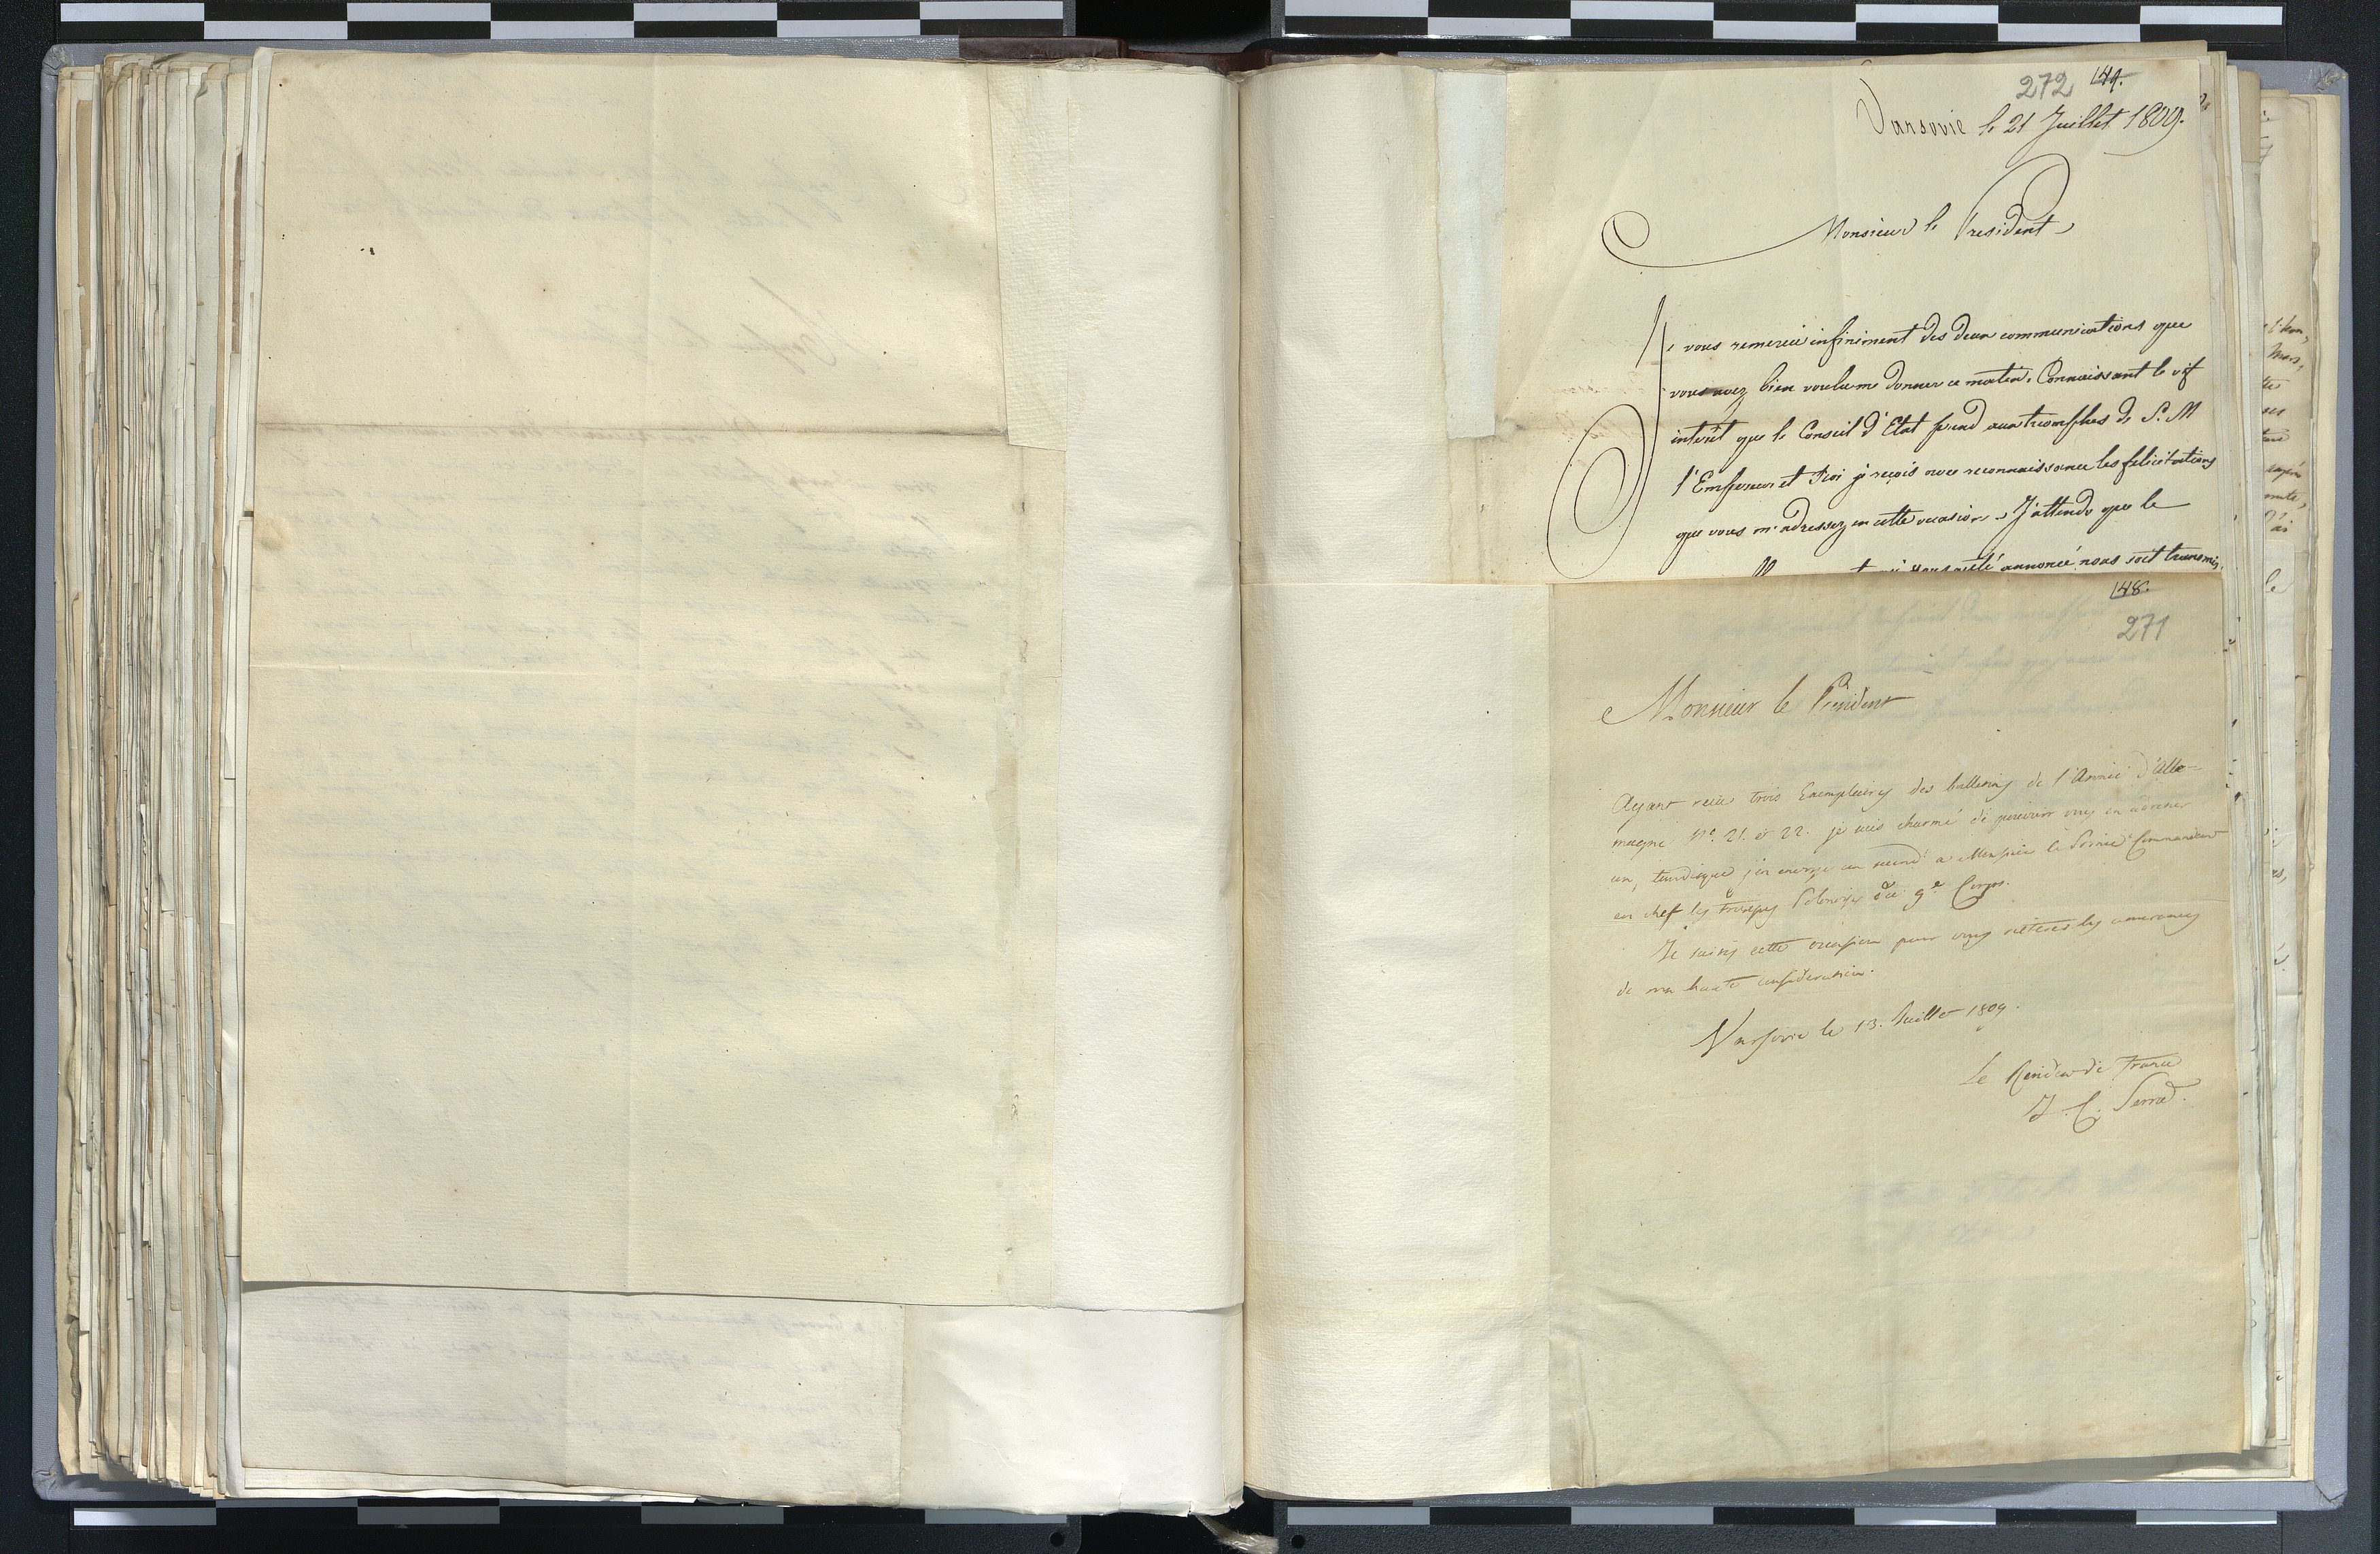 272 149.
Varsovie le 21 Juillet 1809.
Monsieur le President
Je vous remercie infiniment des deux communications que
vous avez bien voulu me donner ce matin. Connaissant le vif
interêt que le Conseil d'Etat prend aux triomphes de S. M
l'Empereur et Roi je reçois avec reconnaissance les felicitations
que vous m'adressez en cette occasion. J'attends que le
annoncé nous soit transmis
148.
271
Monsieur le Président
Ayant reçu trois Exemplaires des bulletins de l'Armée d'Alle=
magne Nº. 21. et 22. je suis charmé de pouvoir vous en adresser
un, tandisque j'en envoye un second a Monsieur le Prince Commandant
en chef les troupes Polonoises du 9e Corps.
Je saisis cette occasion pour vous réiterer les assurances
de ma haute consideration.
Varsovie le 13. Juillet 1809.
Le Resident de France
J. C. Serra.